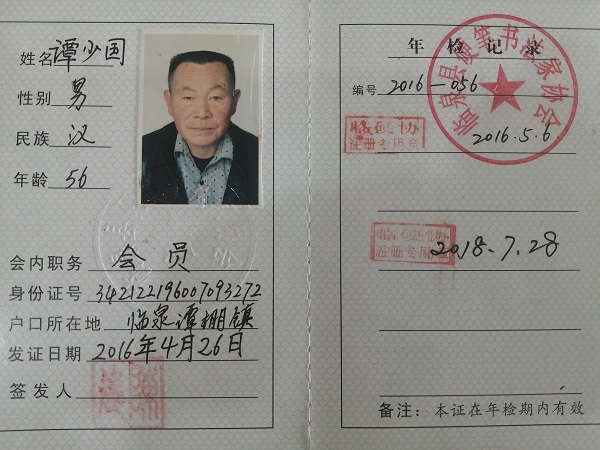 姓名 谭少国
性别 男
民族 汉
年龄 56
会内职务 会员
身份证号 342122196007093272
户口所在地 临泉谭棚镇
发证日期 2016年4月26日
签发人
年检记录
编号 2016-056
临泉县硬笔书法家协会
2016.5.6
临硬协
注册专用章
2018.7.28
临硬协
注册专用章
备注：本证在年检期内有效